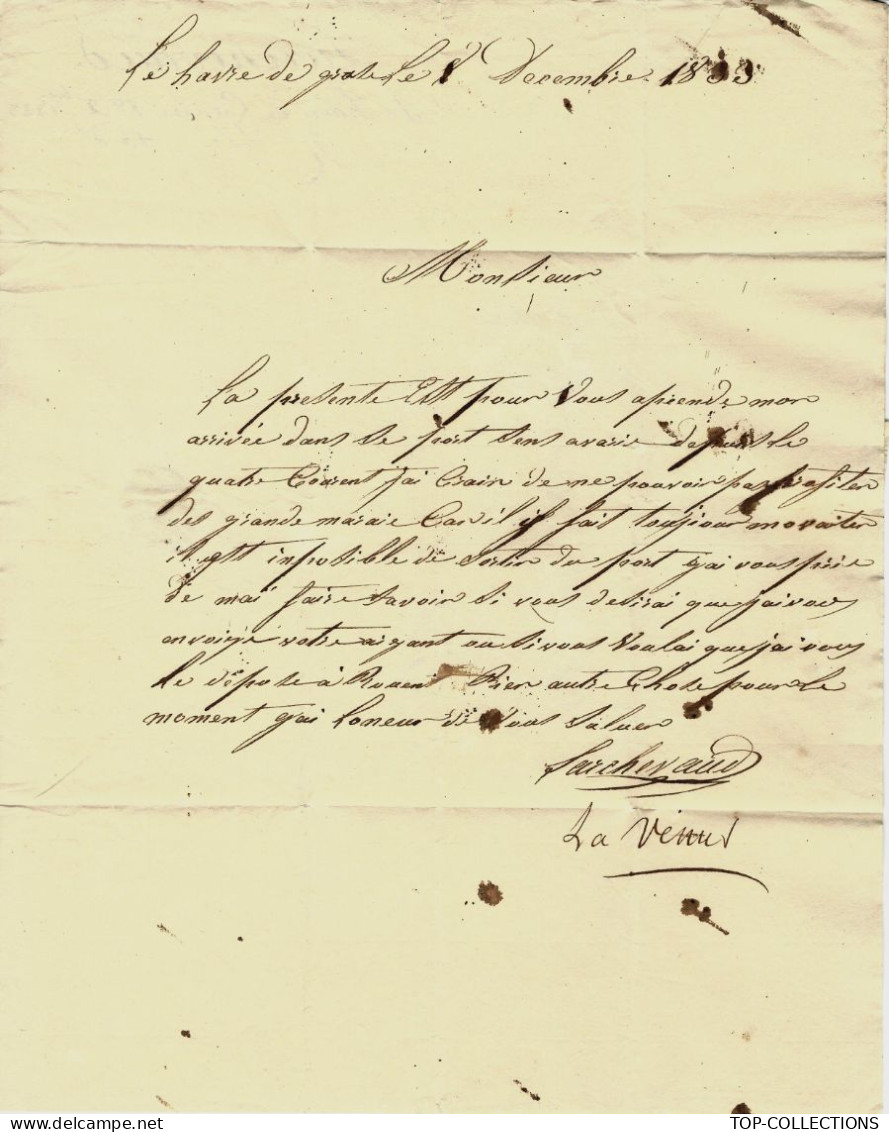 Le havre de grase Le 8 Decembre 1833
Monsieur
La presente Estt pour Vous aprende mon
arrivée dans Le port Sens avarie depuis Le
quatre Courent J'ai Crain de ne pouvoir pas profiter
des grande maraie Car il fait toujour movaiter
il Estt inposible de Sortir du port gai vous prie
de mai faire Savoir Si vous desirai que jai vous
envoige votre argant ou Si vous Voulai que jai vous
le dépose à Rouent Rien autre Chose pour Le
moment gai Loneur de Vous Saluer
Larchevaud
La Vénus
TOP-COLLECTIONS